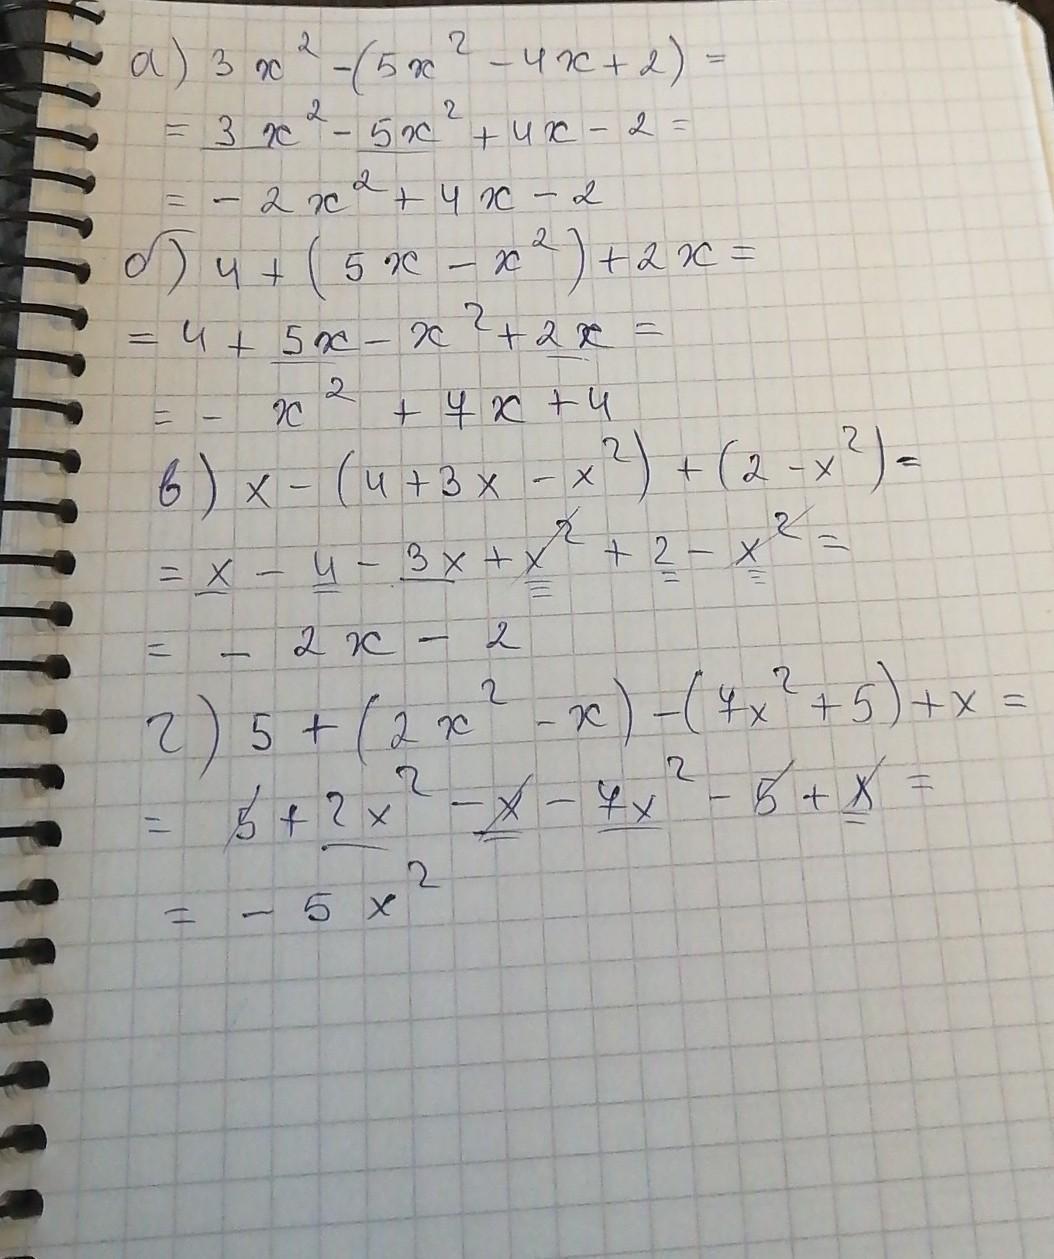 а) 3x² - (5x² - 4x + 2) =
= 3x² - 5x² + 4x - 2 =
= - 2x² + 4x - 2
б) 4 + (5x - x²) + 2x =
= 4 + 5x - x² + 2x =
= - x² + 7x + 4
в) x - (4 + 3x - x²) + (2 - x²) =
= x - 4 - 3x + x² + 2 - x² =
= - 2x - 2
г) 5 + (2x² - x) - (7x² + 5) + x =
= 5 + 2x² - x - 7x² - 5 + x =
= - 5x²